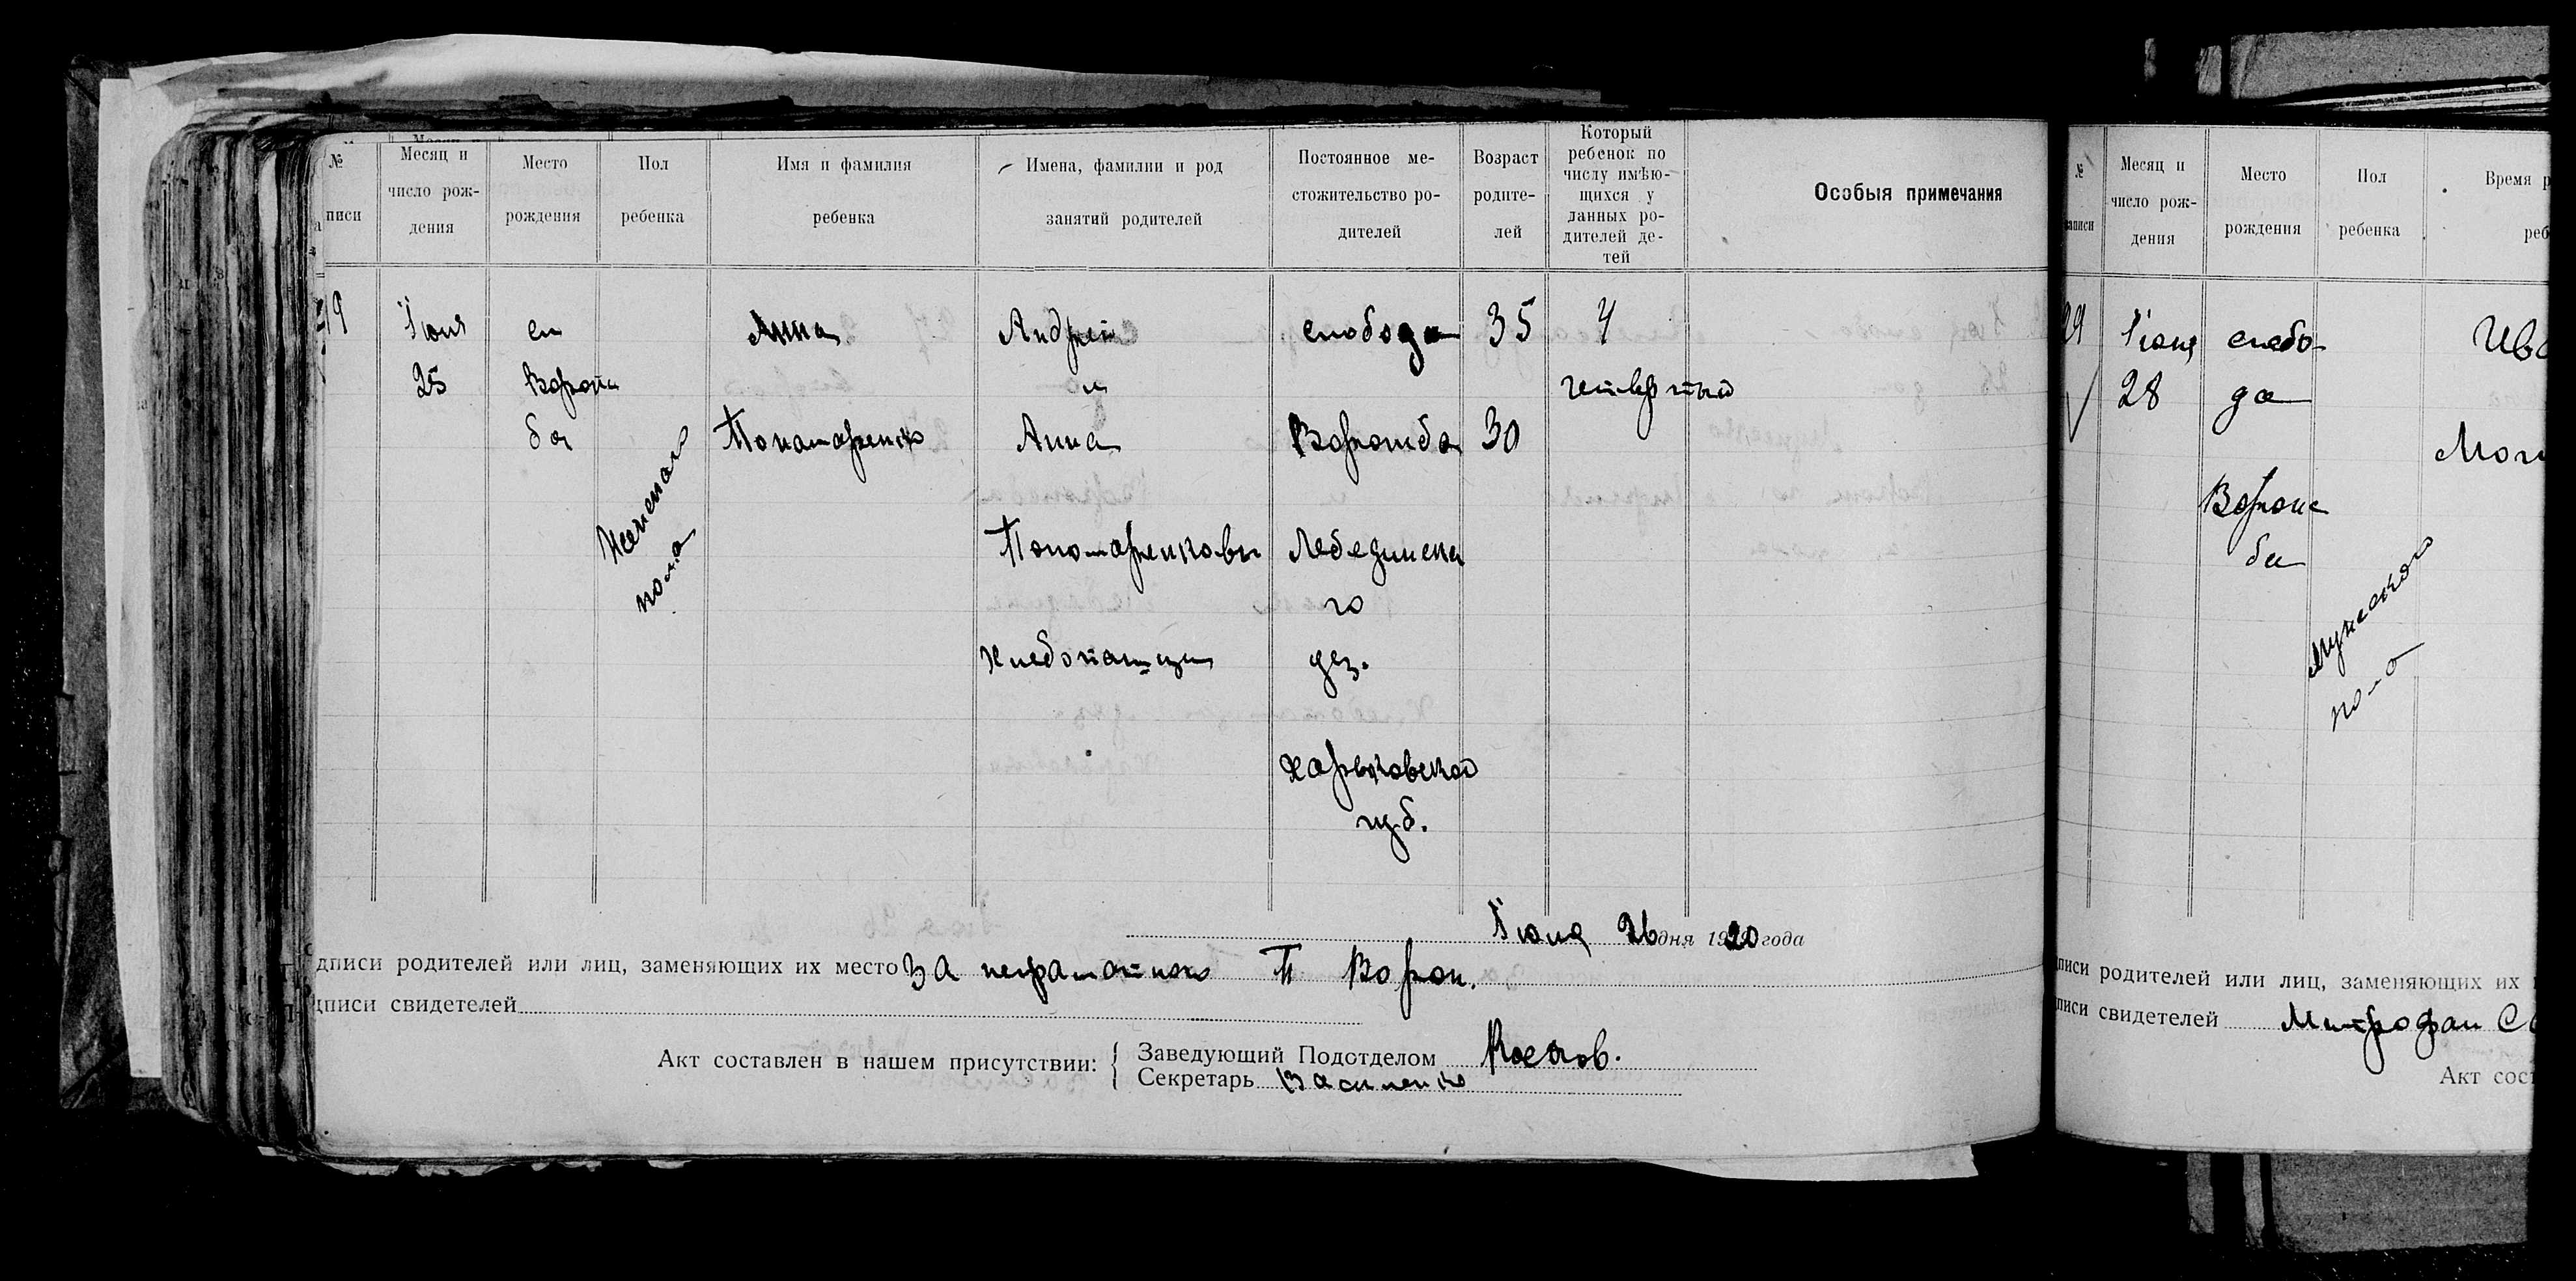 №
писи
Месяц и
число рож-
дения
Место
рождения
Пол
ребенка
Имя и фамилия
ребенка
Имена, фамилии и род
занятий родителей
Постоянное ме-
стожительство ро-
дителей
Возраст
родите-
лей
Который
ребенок по
числу имѣю-
щихся у
данных ро-
дителей де-
тей
Особыя примечания
19
Іюня
25
сл
Ворожи
ба
Женскаго
пола
Анна
Понамаренко
Андрей
и
Анна
Пономаренковы
Хлебопашцы
слобода
Ворожба
Лебединска
го
уез.
Харьковской
губ.
35
30
4
четвертый
Іюня 26 дня 1920 года
дписи родителей или лиц, заменяющих их место За неграмотного П Ворон.
дписи свидетелей
Акт составлен в нашем присутствии:
Заведующий Подотделом
Секретарь Василенко
№
записи
Месяц и
число рож-
дения
Место
рождения
Пол
ребенка
Время р
реб
29
Іюня
28
слобо
да
Ворож
ба
Мужского
пола
Ива
Мог
писи родителей или лиц, заменяющих их
писи свидетелей Митрофан С
Акт сост